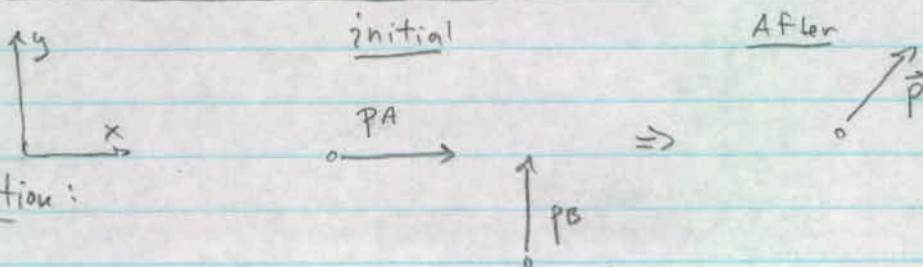 y initial After
PA p
x =>
tion:
PB